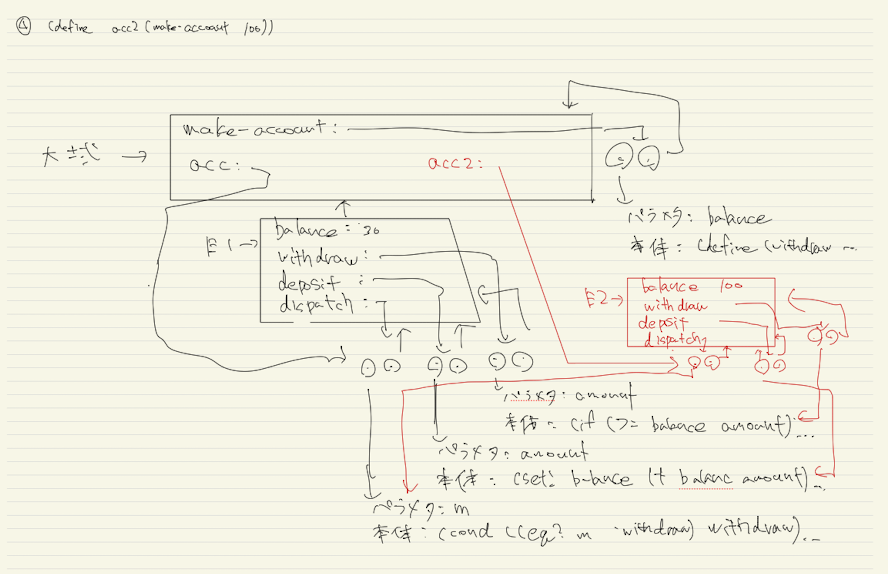 ④ (define acc2 (make-account 100))
make-account:
大域 →
acc:
acc2:
パラメタ: balance
本体: (define (withdraw ...
balance: 30
E1 →
withdraw:
deposit:
dispatch:
E2 →
balance 100
withdraw
deposit
dispatch
パラメタ: amount
本体: (if (>= balance amount) ...
パラメタ: amount
本体: (set! balance (+ balanc amount) ...
パラメタ: m
本体: (cond ((eq? m 'withdraw) withdraw) ...